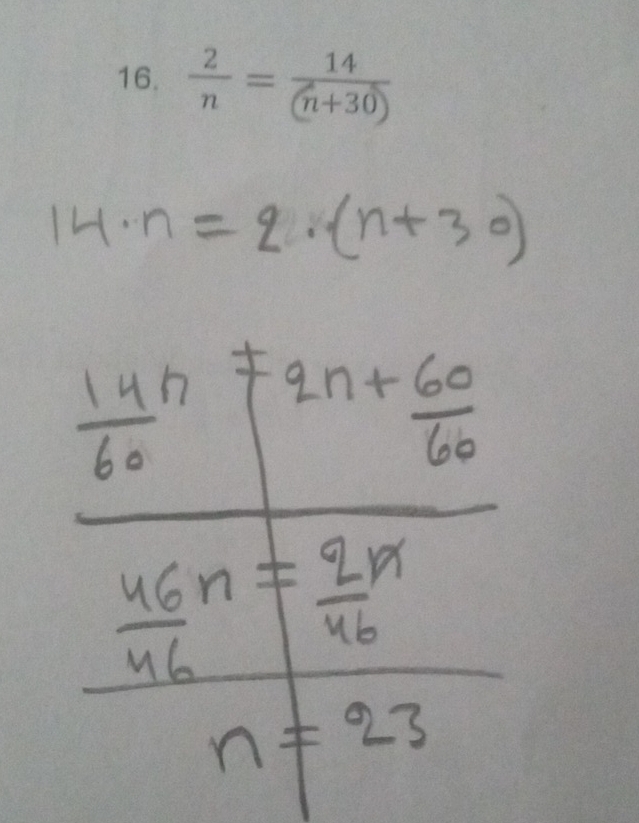 16. 2/n = 14/(n+30)
14·n = 2·(n+30)
14n/60 = 2n + 60/60
46n/46 = 2n/46
n = 23